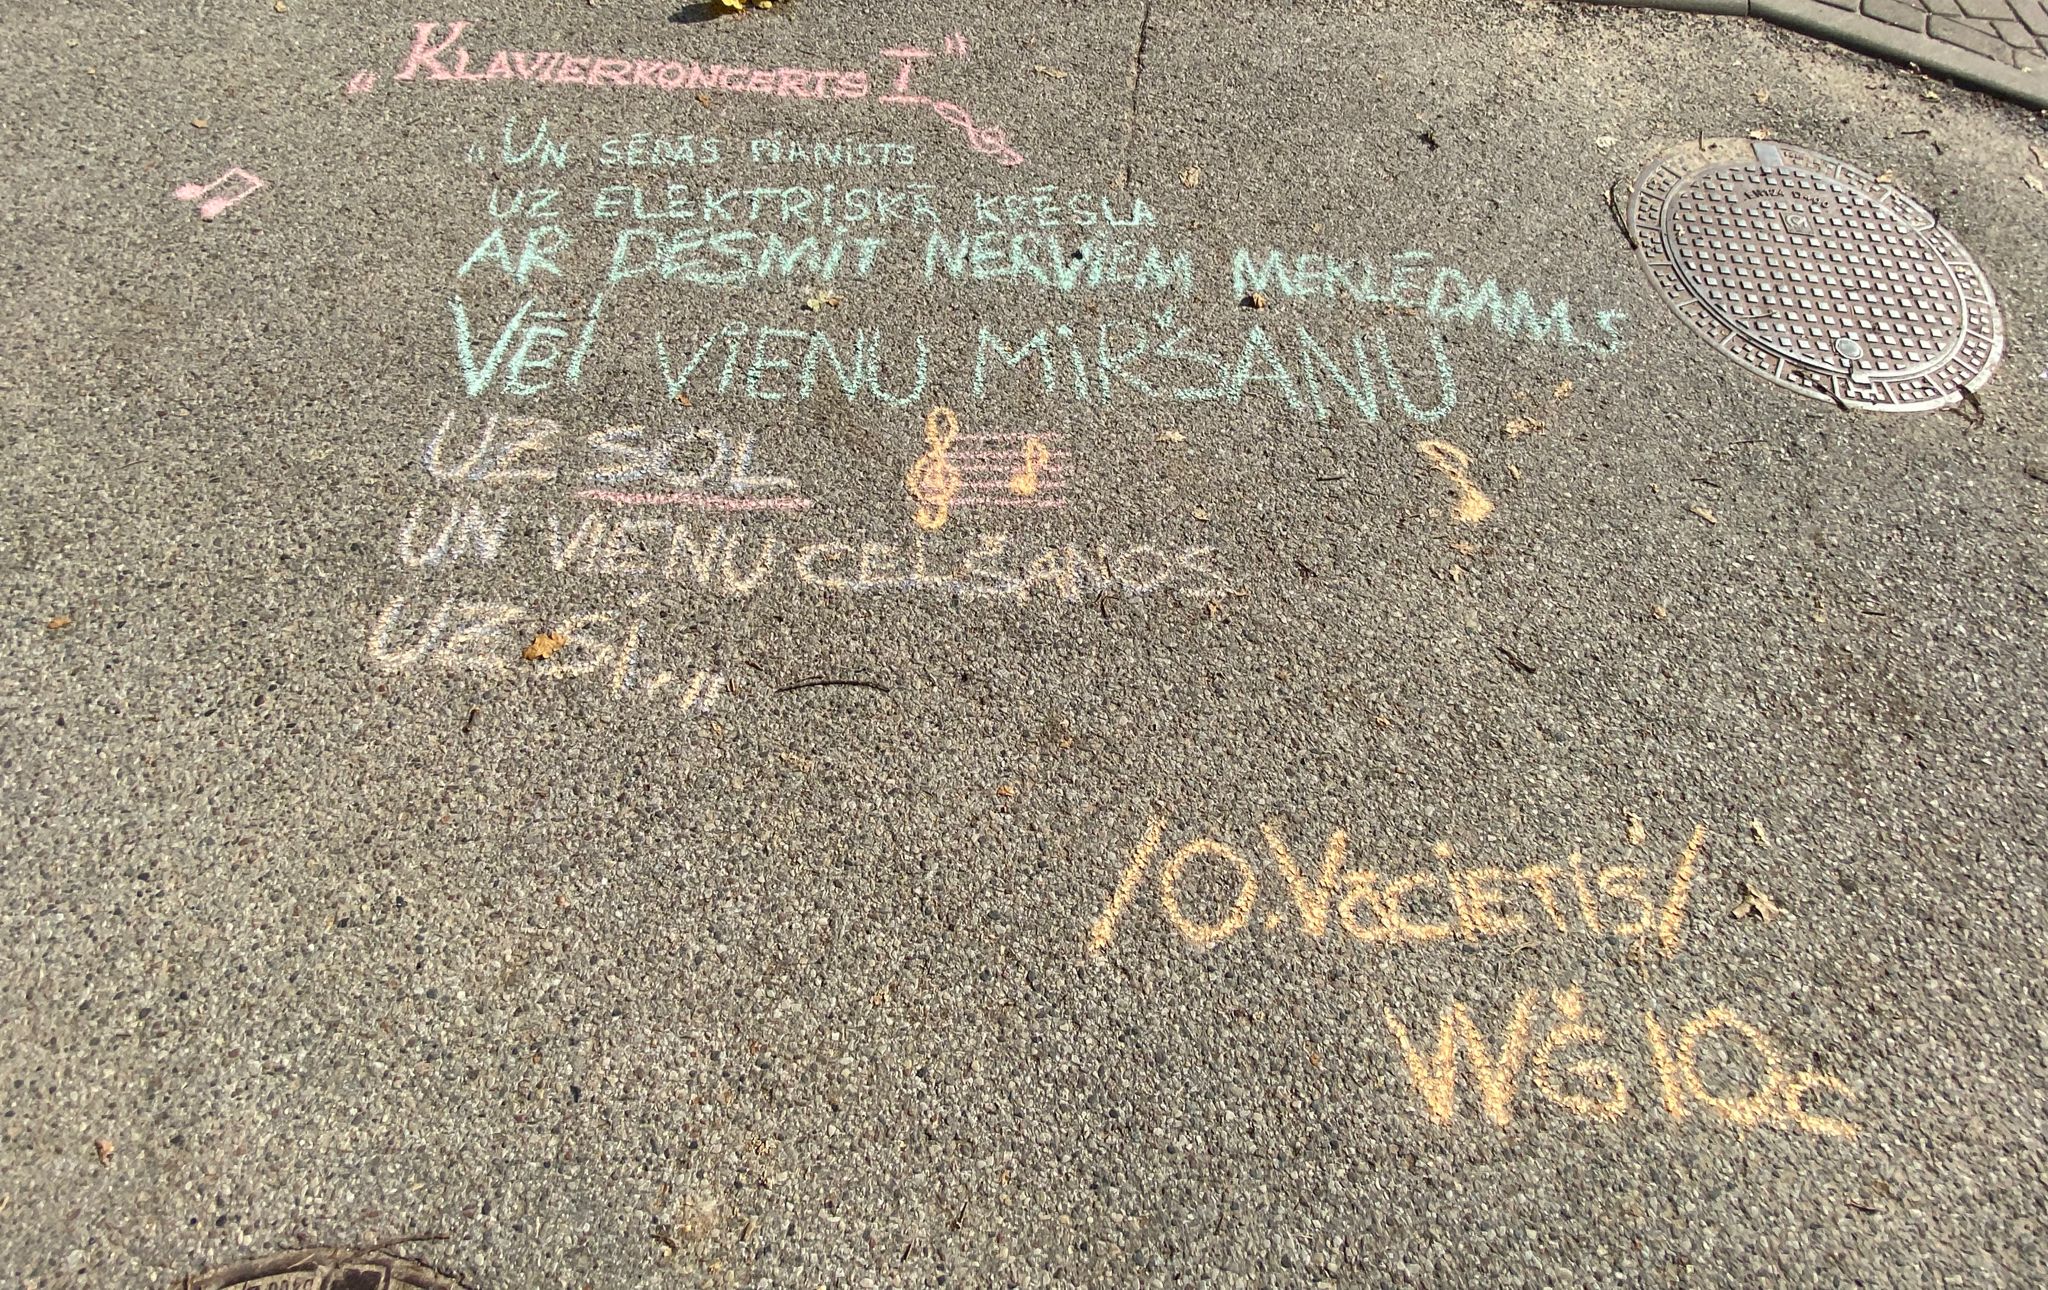 „Klavierkoncerts I”
„Un sēdās pianists
uz elektriskā krēsla
ar desmit nerviem meklēdams
vēl vienu miršanu
uz sol
un vienu celšanos
uz si.”
/O. Vācietis/
WŠ 10c